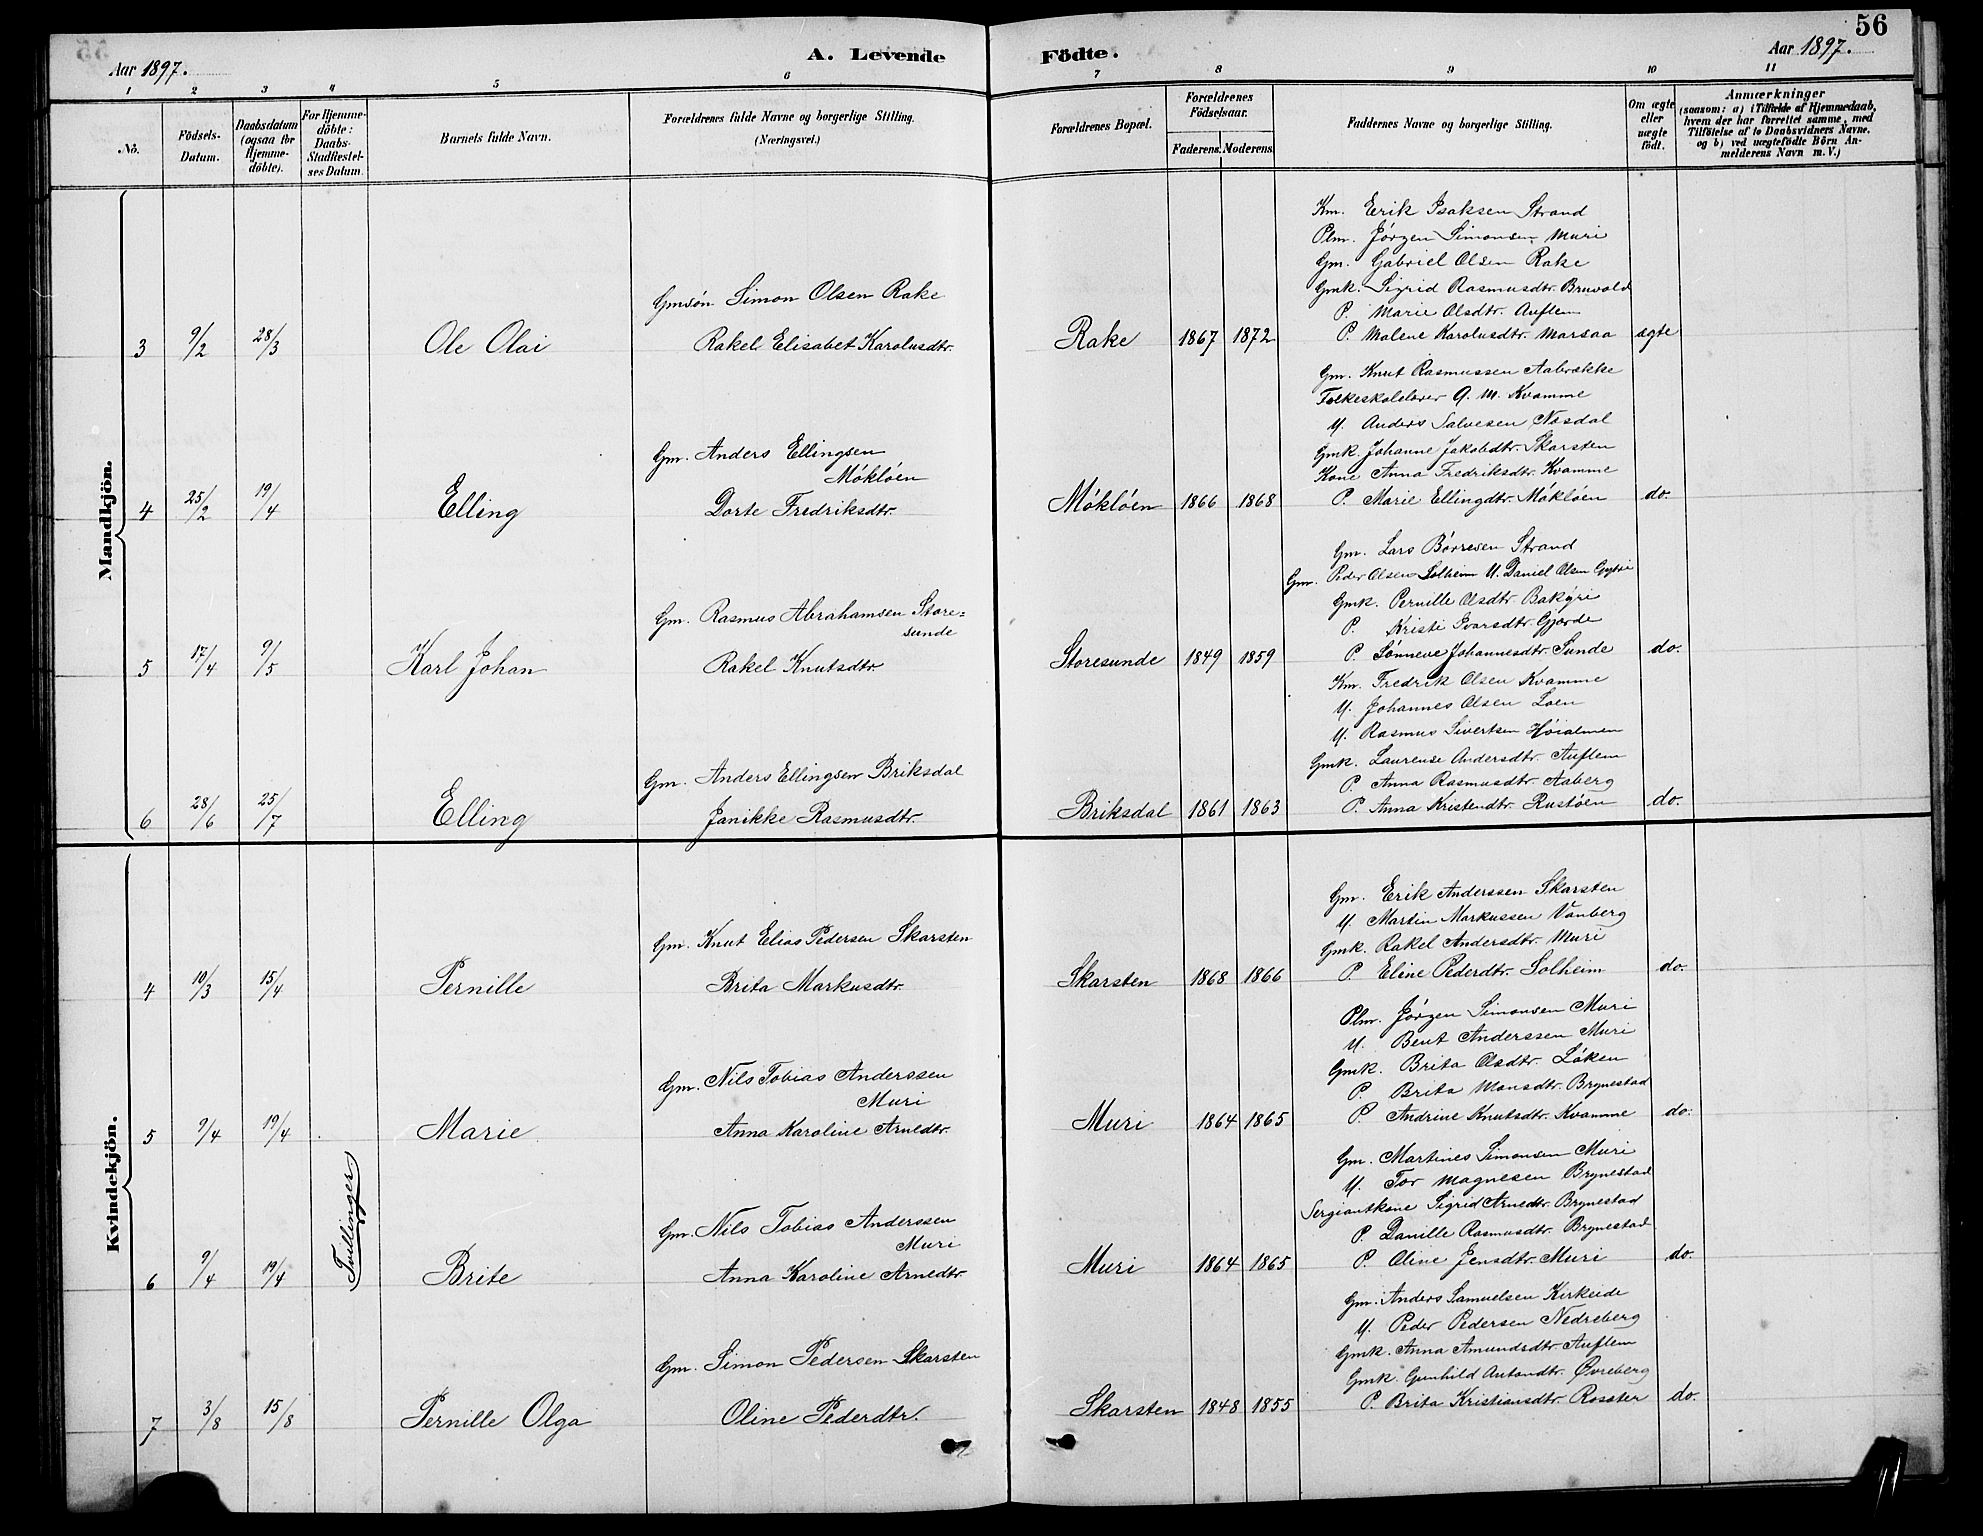 56
Aar 1897.
A. Levende Födte.
Aar 1897.
1 2 3 4 5 6 7 8 9 10 11
No.
Födsels-
Datum.
Daabsdatum
(ogsaa for
Hjemme-
döbte).
For Hjemme-
döbte:
Daabs-
Stadfestel-
ses Datum.
Barnets fulde Navn.
Forældrenes fulde Navne og borgerlige Stilling.
(Næringsvei.)
Forældrenes Bopæl.
Forældrenes
Födselsaar.
Faderens. Moderens.
Faddernes Navne og borgerlige Stilling.
Om ægte
eller
uægte
födt.
Anmærkninger
(saasom: a) i Tilfælde af Hjemmedaab,
hvem der har forrettet samme, med
Tilföielse af to Daabsvidners Navne.
og b) ved uægtefödte Börn An-
melderens Navn m. V.)
Mandkjön.
3 9/2 28/3 Ole Olai
Gmsön Simon Olsen Rake
Rakel Elisabet Karolusdtr.
Rake 1867 1872
Km. Erik Isaksen Strand
Plm. Jörgen Simonsen Muri
Gm. Gabriel Olsen Rake
Gmk. Sigrid Rasmusdtr. Bruvold
P. Marie Olsdtr. Auflem
P. Malene Karolusdtr. Marsaa ægte
4 25/2 19/4 Elling
Gm. Anders Ellingsen
Möklöen
Dorte Fredriksdtr.
Möklöen 1866 1868
Gm. Knut Rasmussen Aabrække
Folkeskolelærer A. M. Kvamme
U. Anders Salvesen Nosdal
Gmk. Johanne Jakobdtr. Skarsten
Kone Anna Fredriksdtr. Kvamme
P. Marie Ellingdtr. Möklöen do.
5 17/4 9/5 Karl Johan
Gm. Rasmus Abrahamsen Store=
sunde
Rakel Knutsdtr.
Storesunde 1849 1859
Gm. Lars Börresen Strand
Gm. Peder Olsen Solheim U. Daniel Olsen
Gmk. Pernille Olsdtr. Baköri
P. Kristi Ivarsdtr. Gjörde
P. Sönneve Johannesdtr. Sunde do.
6 28/6 25/7 Elling
Gm. Anders Ellingsen Briksdal
Janikke Rasmusdtr.
Briksdal 1861 1863
Km. Fredrik Olsen Kvamme
U. Johannes Olsen Loen
U. Rasmus Sivertsen Höialmen
Gmk. Laurense Andersdtr. Auflem
P. Anna Rasmusdtr. Aaberg
P. Anna Kristendtr. Rustöen do.
Kvindekjön.
4 10/3 15/4 Pernille
Gm. Knut Elias Pedersen Skarsten
Brita Markusdtr.
Skarsten 1868 1866
Gm. Erik Anderssen Skarsten
U. Martin Markussen Vanberg
Gmk. Rakel Andersdtr. Muri
P. Eline Pederdtr. Solheim do.
5 9/4 19/4 Marie
Gm. Nils Tobias Anderssen
Muri
Anna Karoline Arnedtr.
Muri 1864 1865
Plm. Jörgen Simonsen Muri
U. Bent Anderssen Muri
Gmk. Brita Olsdtr. Löken
P. Brita Monsdtr. Brynestad
P. Andrine Knutsdtr. Kvamme do.
Tvillinger
6 9/4 19/4 Brite
Gm. Nils Tobias Anderssen
Muri
Anna Karoline Arnedtr.
Muri 1864 1865
Gm. Martines Simonsen Muri
U. Tor Magnesen Brynestad
Sergiantkone Sigrid Arnedtr. Brynestad
P. Danille Rasmusdtr. Brynestad
P. Oline Jensdtr. Muri do.
7 3/8 15/8 Pernille Olga
Gm. Simon Pedersen Skarsten
Oline Pederdtr.
Skarsten 1848 1855
Gm. Anders Samuelsen Kirkeide
U. Peder Pedersen Nedreberg
Gmk. Anna Amundsdtr. Auflem
Gmk. Gunhild Antondtr. Øvreberg
P. Brita Kristiansdtr. Rosæter do.